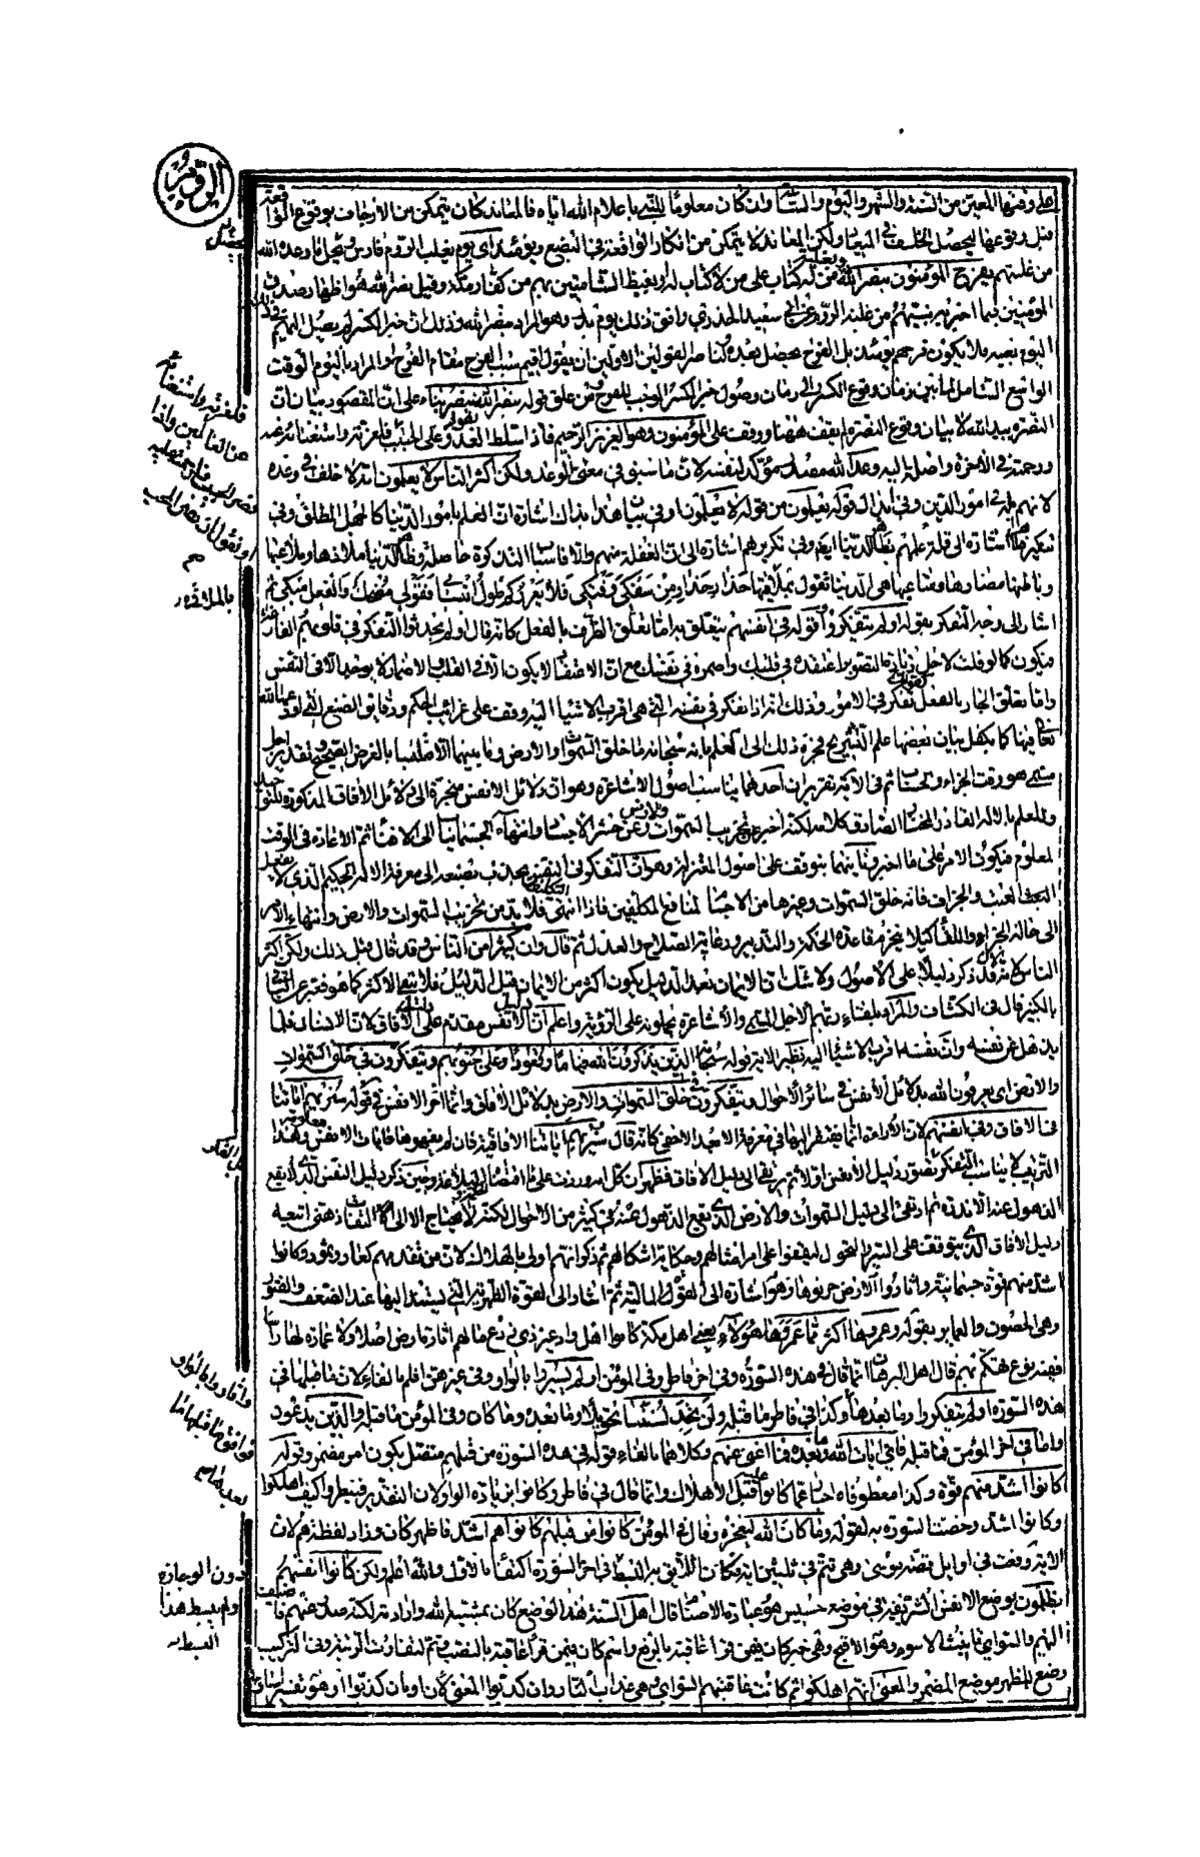 على وقتها المعين من السنة والشهر واليوم والساعة وان كان معلوما للنبي باعلام الله اياه فالمعاند كان يتمكن من الارجاف بوقوع الواقعة
قبل وقوعها ليحصل الخلف في الميعاد ولكن المعاند لا يتمكن من انكار الواقعة في البضع ويومئذ اى يوم يغلب الروم فارس ويحل ما وعده الله
من غلبتهم يفرح المؤمنون بنصر الله من له كتاب على من لا كتاب له ويغيظ الشامتين بهم من كفار مكة وقيل نصر الله هو اظهار صدق
المؤمنين فيما اخبر به نبيهم من غلبة الروم وعن ابي سعيد الخدري وافق ذلك يوم بدر وهو المراد بنصر الله وذلك ان خبر الكسر لم يصل اليهم في ذلك
اليوم بعينه فلا يكون فرحهم يومئذ بل الفرح يحصل بعده ولناصر القولين الاولين ان يقول اقيم سبب الفرح مقام الفرح او المراد باليوم الوقت
الواسع الشامل لما بين زمان وقوع الكسر الى زمان وصول خبر الكسر الموجب للفرح ومن علق قوله بنصر الله بينصر بناء على ان المقصود بيان ان
النصرة بيد الله لا بيان وقوع النصرة لم يقف ههنا ووقف على المؤمنون وهو العزيز الرحيم
ورحمته في الآخرة واصل اليه وعد الله مصدر مؤكد لنفسه لان ما سبق في معنى الوعد ولكن اكثر الناس لا يعلمون انه لا خلف في وعده
امور الدين وفي ابدال قوله يعلمون من قوله لا يعلمون وفي بيان هذا بذاك اشارة الى ان العلم بامور الدنيا كالجهل المطلق وفي
تنكير ظاهرا اشارة الى قلة علمهم بظاهر الدنيا ايضا وفي تكرير هم اشارة الى ان الغفلة منهم والا فاسباب التذكرة حاصلة وظاهر الدنيا ملاذها وملاعبها
وباطنها مضارها ومتاعبها هي الدنيا تقول بملء فيها حذار حذار من سفكي وفتكي فلا يغرركم طول ابتسامي فقولي مضحك والفعل مبكي ثم
اشار الى وجه التفكر بقوله اولم يتفكروا قوله في انفسهم يتعلق به اما تعلق الظرف بالفعل كانه قال اولم يحدثوا التفكر في قلوبهم الفارغة
فيكون كالوقلت لاجل زيادة التصوير اعتقده في قلبك واضمره في نفسك مع ان الاعتقاد لا يكون الا في القلب والاضمار لا يوجد الا في النفس
واما تعلق الجار بالفعل كقولك تفكر في الامور وذلك انه اذا تفكر في نفسه التي هي اقرب الاشياء اليه وقف على غرائب الحكم ودقائق الصنع التي اودعها الله
تعالى فيها كما يكفل ببيان بعضها علم التشريح فجره ذلك الى ان يعلم بانه سبحانه ما خلق السموات والارض وما بينهما الا متلبسا بالغرض الصحيح وبتقدير اجل
مسمى هو وقت الجزاء والحساب ثم في الآية تقريران احدهما يناسب اصول الاشاعرة وهو ان دلائل الانفس منجرة الى دلائل الآفاق المذكورة
وللعلم بالاله القادر المختار الصادق كلامه لكنه اخبر عن تخريب السموات والارض وعن حشر الاجساد وانتهاء الجسمانيات الى الافناء ثم الاعادة في الوقت
المعلوم فيكون الامر على ما اخبر وثانيهما يتوقف على اصول المعتزلة وهو ان التفكر في النفس يجذب بضبعه الى معرفة الاله الحكيم الذي لا يفعل
العبث والجزاف فانه خلق السموات وغيرها من الاجسام لمنافع المكلفين فاذا انتهى التكليف فلا بد من تخريب السموات والارض وانتهاء الامر
الى حالة الجزاء واللقاء كيلا ينخرم قاعدة الحكمة والتدبير ورعاية الصلاح والعدل ثم قال وان كثيرا من الناس وقد قال قبل ذلك ولكن اكثر
الناس لانه قد ذكر دليلا على الاصول ولا شك ان الايمان بعد الدليل يكون اكثر من الايمان قبل الدليل فلا يبقى الاكثر كما هو فعبر عن الباقي
بالكثير قال في الكشاف والمراد بلقاء ربهم الاجل المسمى والاشاعرة يحملونه على الرؤية واعلم ان دليل الانفس مقدم على دليل الآفاق لان الانسان قلما
يذهل عن نفسه وان نفسه اقرب الاشياء اليه نظير الاية قوله سبحانه الذين يذكرون الله قياما وقعودا وعلى جنوبهم ويتفكرون في خلق السموات
والارض اى يعرفون الله بدلائل الانفس في سائر الاحوال ويتفكرون في خلق السموات والارض بدلائل الآفاق وانما اخر الانفس في قوله سنريهم اياتنا
في الآفاق وفي انفسهم لان الاراءة انما يفتقر اليها في معرفة الابعد الاخفى كانه قال سنريهم اياتنا الآفاقية فان لم يفهموها فايات الانفس معلومة وهذا
الترتيب لا يناسب التفكر بتصور دليل الانفس اولا ثم يرتقى الى دليل الآفاق فظهر ان كلا من الايتين وردت على ما اقتضاه الحكمة وحين ذكر دليل النفس الذي لا يقع
الذهول عنه الا ندرة ثم ارتقى الى دليل السموات والارض الذي يقع الذهول عنه في كثير من الاحوال لكنه لا يحتاج الا الى التفات ذهني اتبعه
دليل الآفاق الذي يتوقف على السير والتحول ليقفوا على امر امثالهم وحكاية اشكالهم ثم ذكر انهم اولى بالهلاك لان من تقدمهم كعاد وثمود وكانوا
اشد منهم قوة جسمانية واثاروا الارض حرثوها وهو اشارة الى القوة المالية ثم اشار الى القوة الظهرية التي يستند اليها عند الضعف والفتور
وهي الحصون والعمائر بقوله وعمروها اكثر مما عمروها هؤلاء يعني اهل مكة كانوا اهل واد غير ذي زرع ما لهم اثارة ارض اصلا ولا عمارة لها راسا
فهذا نوع تهكم بهم قال اهل البرهان انما قال في هذه السورة وفي اخر فاطر وفي المؤمن اولم يسيروا بالواو وفي غيرهن افلم بالفاء لان ما قبلها في
هذه السورة اولم يتفكروا وما بعدها واثاروا وكذا في فاطر ما قبله ولن تجد لسنة الله تحويلا وما بعده وما كان وفي المؤمن ما قبله والذين يدعون
واما في اخر المؤمن فما قبله فاي ايات الله وما بعده فما اغنى عنهم وكلاهما بالفاء قوله في هذه السورة من قبلهم متصل بكون اخر مضمر وقوله
كانوا اشد منهم قوة وكذا معطوفاه اخبار عما كانوا عليه قبل الاهلاك وانما قال في فاطر وكانوا بزيادة الواو لان التقدير فينظروا كيف اهلكوا
وكانوا اشد وخصت السورة به لقوله وما كان الله ليعجزه وقال في المؤمن كانوا من قبلهم كانوا هم اشد فاظهر كان وزاد لفظة هم لان
الاية وقعت في اوائل قصة موسى وهي تتم في ثلثين اية فكان اللائق به البسط في اخر السورة اكتفاء بالاول والله اعلم ولكن كانوا انفسهم
يظلمون بوضع الانفس الشريفة في موضع خسيس هو عبادة الاصنام قال اهل السنة هذا الوضع كان بمشيئة الله وارادته لكنه صدر عنهم فاضيف
اليهم والسوأى تانيث الاسوء وهو الاقبح وهي خبر كان فيمن قرأ عاقبة بالرفع واسم كان فيمن قرأ عاقبة بالنصب
وضع المظهر موضع المضمر والمعنى انهم اهلكوا ثم كانت عاقبتهم السوأى وهي عذاب النار وان كذبوا المعنى لان او بان كذبوا او هو تفسير اساءوا
بالملائمة
دون الوجازة
ولم يبسط هذا
البسط